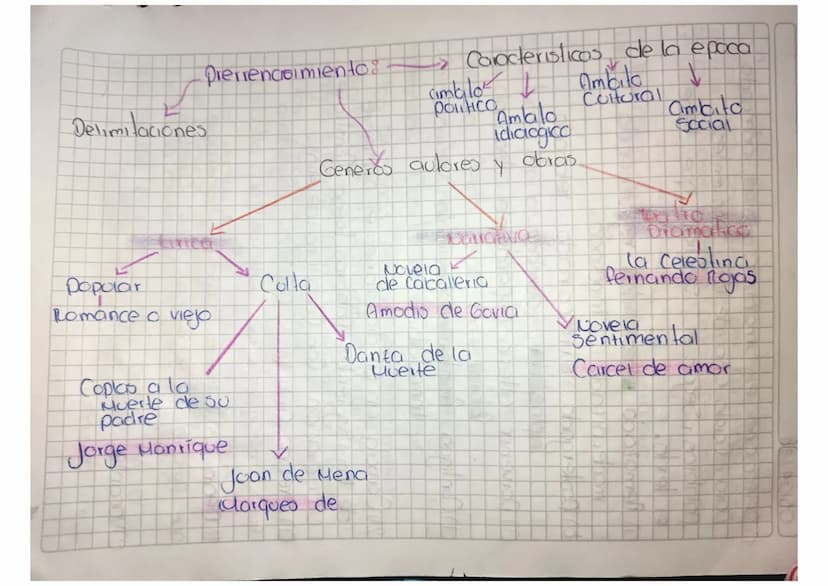 Prerrencimiento:
Caracteristicas de la epoca
Delimitaciones
ambito
politico
Ambito
idiologico
Ambito
Cultural
Ambito
Social
Generos autores y obras
Lirica
Popular
Romance o viejo
Culta
Coplas a la
Muerte de su
padre
Jorge Manrique
Juan de Mena
Marques de
Danta de la
Muerte
Narrativa
Novela
de Cabaleria
Amodis de Gavia
Novela
Sentimental
Carcel de amor
Teatro
Dramatico
la Celestina
fernando Rojas